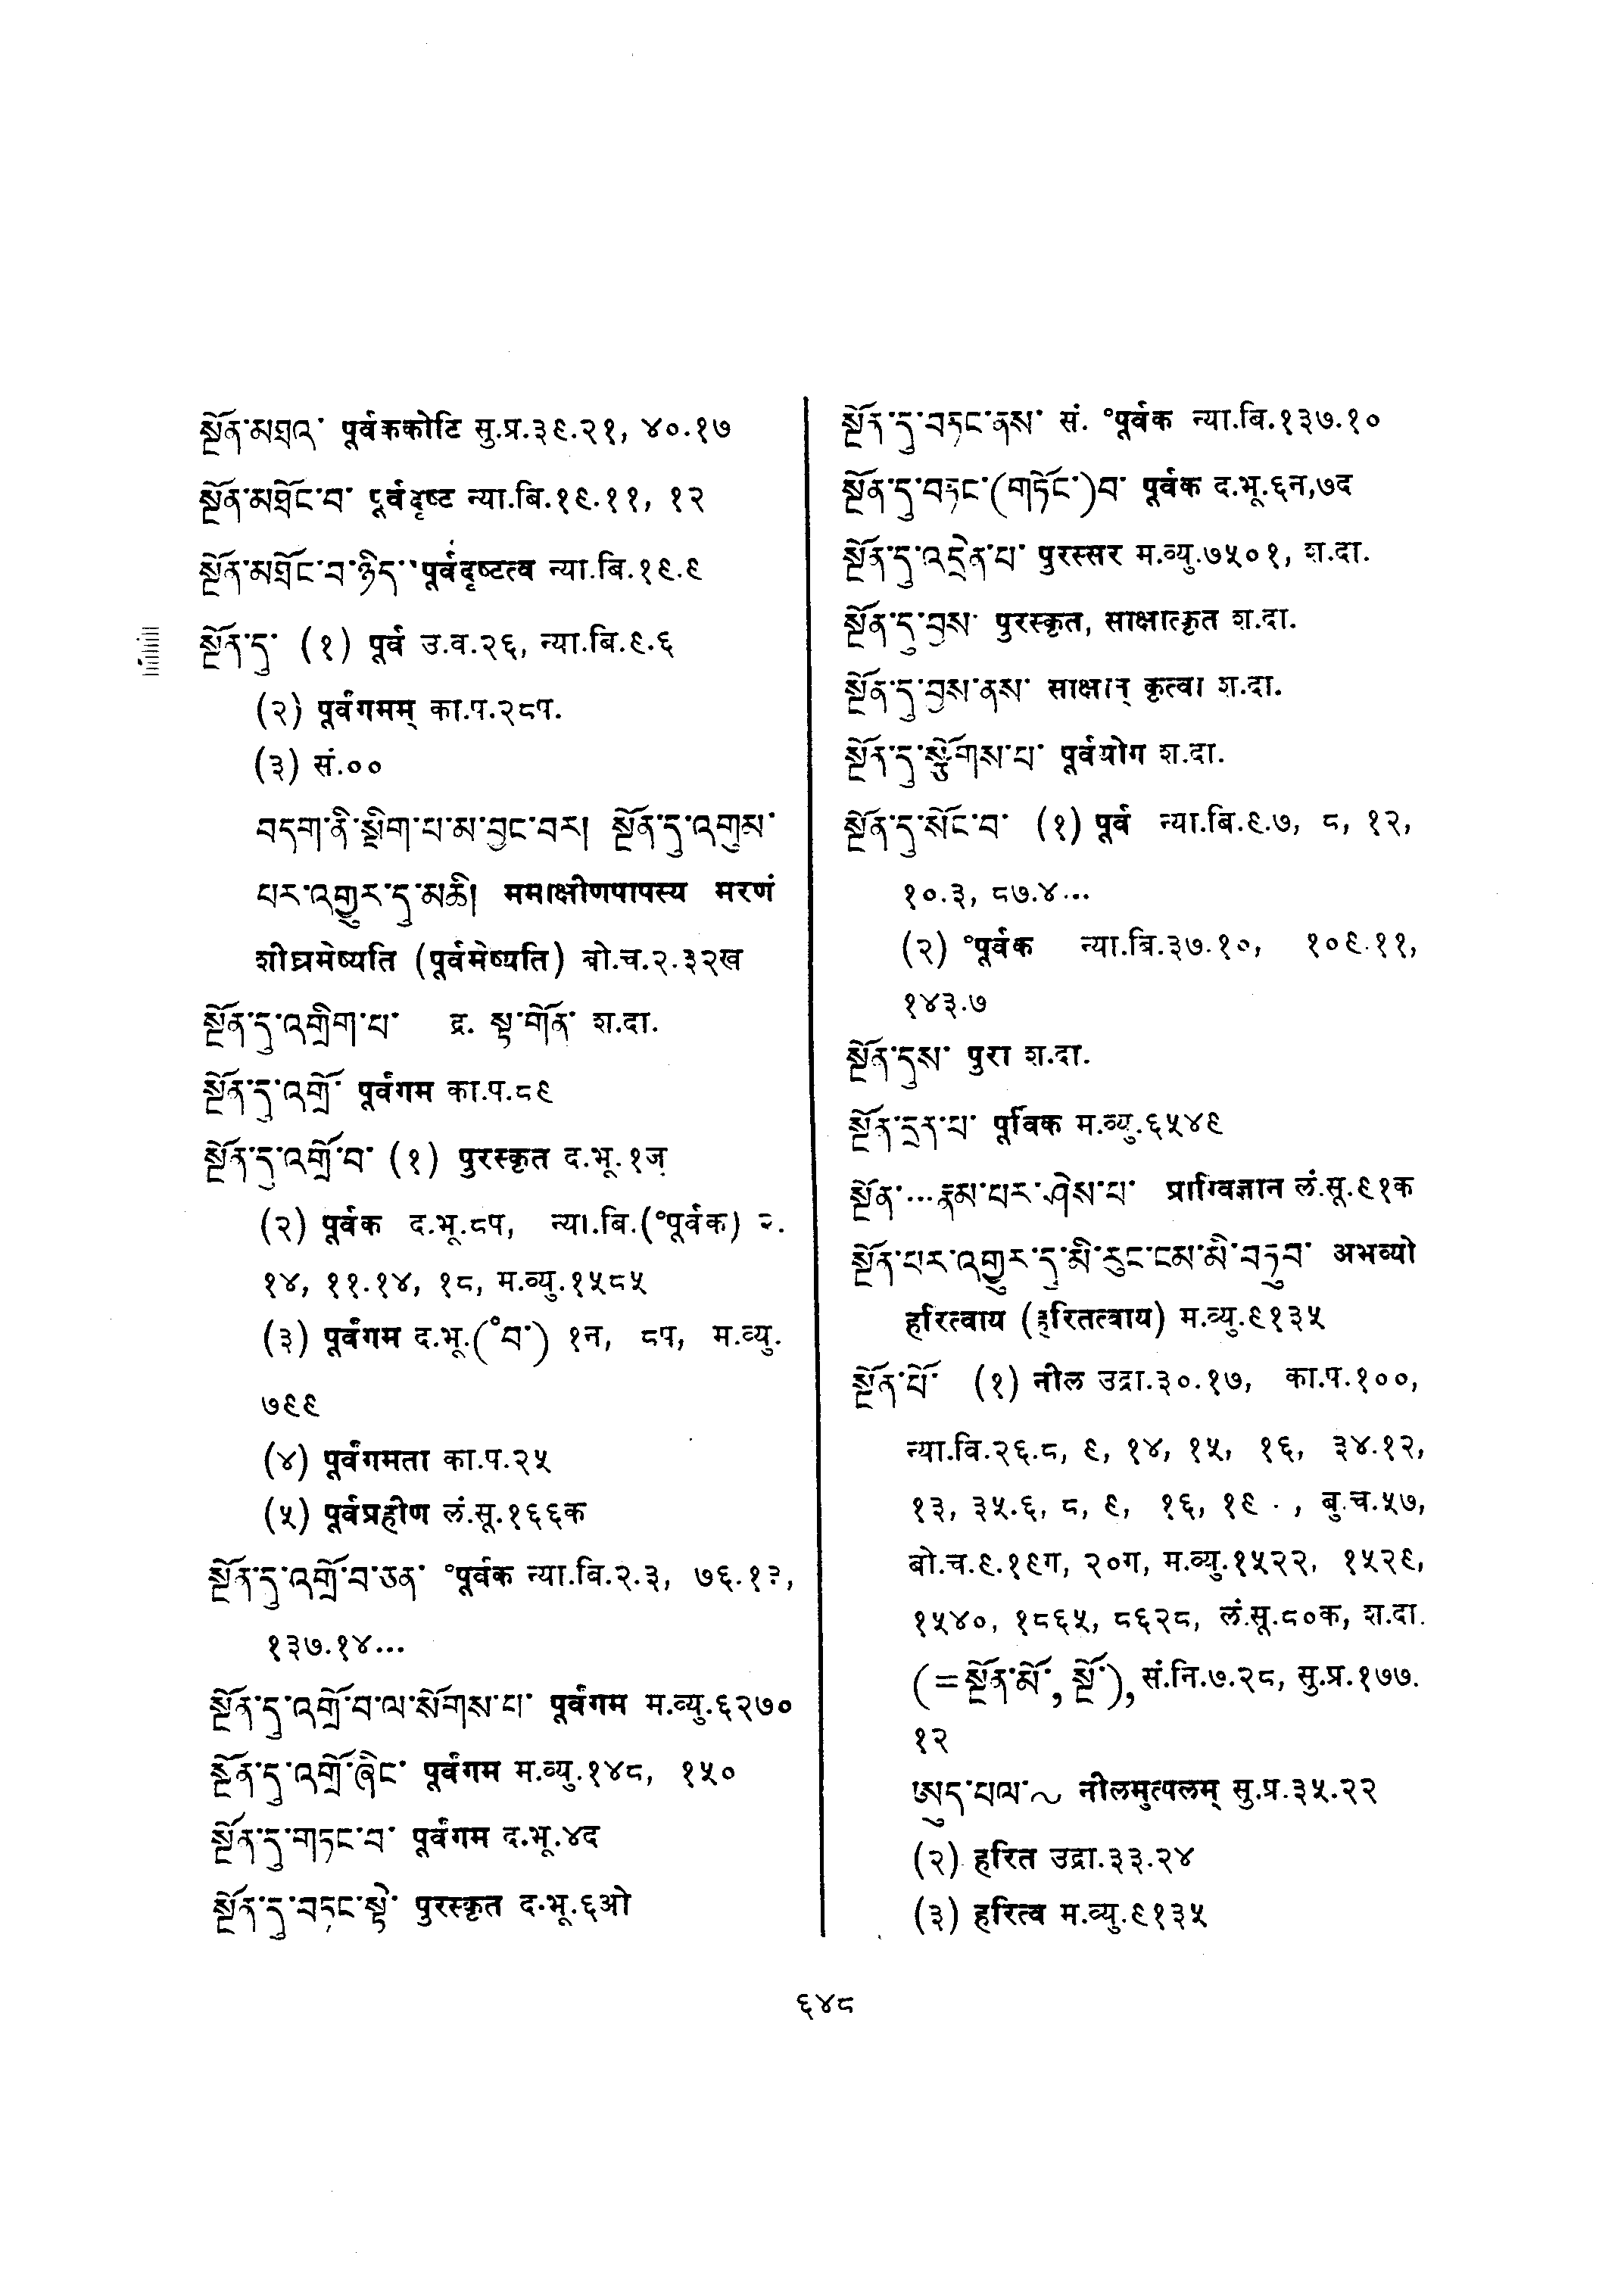 སྔོན་མཐའ་ पूर्वककोटि सु.प्र.३९.२१, ४०.१७
སྔོན་མཐོང་བ་ पूर्वदृष्ट न्या.बि.१९.११, १२
སྔོན་མཐོང་བ་ཉིད་ पूर्वदृष्टत्व न्या.बि.१९.९
སྔོན་དུ་ (१) पूर्व उ.व.२६, न्या.बि.९.६
(२) पूर्वंगमम् का.प.२८प.
(३) सं.००
བདག་ནི་སྡིག་པ་མ་བྱང་བར། སྔོན་དུ་འགུམ་
པར་འགྱུར་དུ་མཆི། ममाक्षीणपापस्य मरणं
शीघ्रमेष्यति (पूर्वमेष्यति) बो.च.२.३२ख
སྔོན་དུ་འགྲིག་པ་ द्र. སྟ་གོན་ श.दा.
སྔོན་དུ་འགྲོ་ पूर्वंगम का.प.८९
སྔོན་དུ་འགྲོ་བ་ (१) पुरस्कृत द.भू.१ज
(२) पूर्वक द.भू.८प, न्या.बि.(॰पूर्वक) २.
१४, ११.१४, १८, म.व्यु.१५८५
(३) पूर्वंगम द.भू.(॰བ་) १न, ८प, म.व्यु.
७९९
(४) पूर्वंगमता का.प.२५
(५) पूर्वप्रहीण लं.सू.१६६क
སྔོན་དུ་འགྲོ་བ་ཅན་ ॰पूर्वक न्या.बि.२.३, ७६.१३,
१३७.१४...
སྔོན་དུ་འགྲོ་བ་ལ་སོགས་པ་ पूर्वंगम म.व्यु.६२७०
སྔོན་དུ་འགྲོ་ཞིང་ पूर्वंगम म.व्यु.१४८, १५०
སྔོན་དུ་གཏང་བ་ पूर्वंगम द.भू.४द
སྔོན་དུ་བཏང་སྟེ་ पुरस्कृत द.भू.६ओ
སྔོན་དུ་བཏང་ནས་ सं. ॰पूर्वक न्या.बि.१३७.१०
སྔོན་དུ་བཏང་(གཏོང་)བ་ पूर्वक द.भू.६न,७द
སྔོན་དུ་འདྲེན་པ་ पुरस्सर म.व्यु.७५०१, श.दा.
སྔོན་དུ་བྱས་ पुरस्कृत, साक्षात्कृत श.दा.
སྔོན་དུ་བྱས་ནས་ साक्षात् कृत्वा श.दा.
སྔོན་དུ་སྦྱོགས་པ་ पूर्वयोग श.दा.
སྔོན་དུ་སོང་བ་ (१) पूर्व न्या.बि.९.७, ८, १२,
१०.३, ८७.४...
(२) ॰पूर्वक न्या.बि.३७.१०, १०९.११,
१४३.७
སྔོན་དུས་ पुरा श.दा.
སྔོན་དྲན་པ་ पूर्विक म.व्यु.६५४९
སྔོན་...རྣམ་པར་ཤེས་པ་ प्राग्विज्ञान लं.सू.९१क
སྔོན་པར་འགྱུར་དུ་མི་རུང་ངམ་མི་བཏུབ་ अभव्यो
हरित्वाय (हरितत्वाय) म.व्यु.९१३५
སྔོན་པོ་ (१) नील उद्रा.३०.१७, का.प.१००,
न्या.वि.२६.८, ९, १४, १५, १६, ३४.१२,
१३, ३५.६, ८, ९, १६, १९ . , बु.च.५७,
बो.च.९.१९ग, २०ग, म.व्यु.१५२२, १५२९,
१५४०, १८६५, ८६२८, लं.सू.८०क, श.दा.
(=སྔོན་མོ་, སྔོ་), सं.नि.७.२८, सु.प्र.१७७.
१२
ཨུད་པལ་~ नीलमुत्पलम् सु.प्र.३५.२२
(२) हरित उद्रा.३३.२४
(३) हरित्व म.व्यु.९१३५
६४८